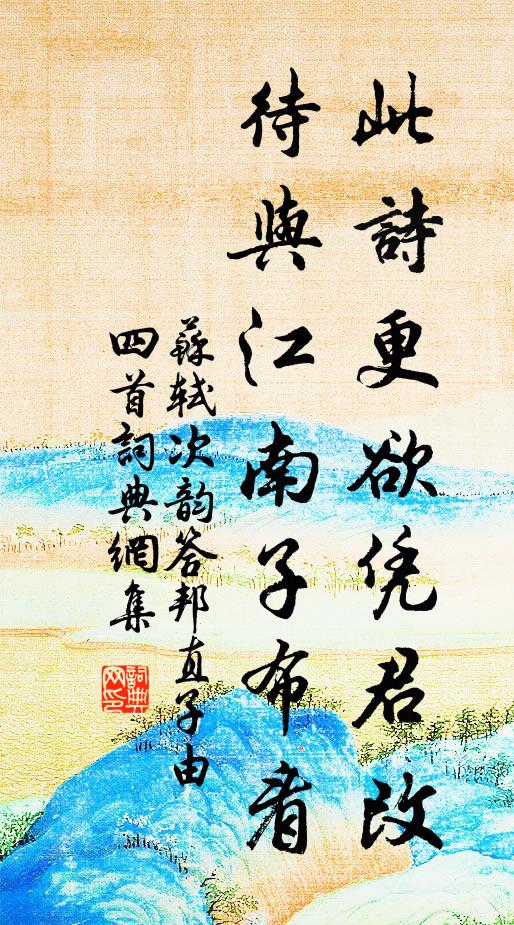 此詩更欲凭君改
待與江南子布看
蘇軾次韵答邦直子由
四首詞典網集
詞典
网印